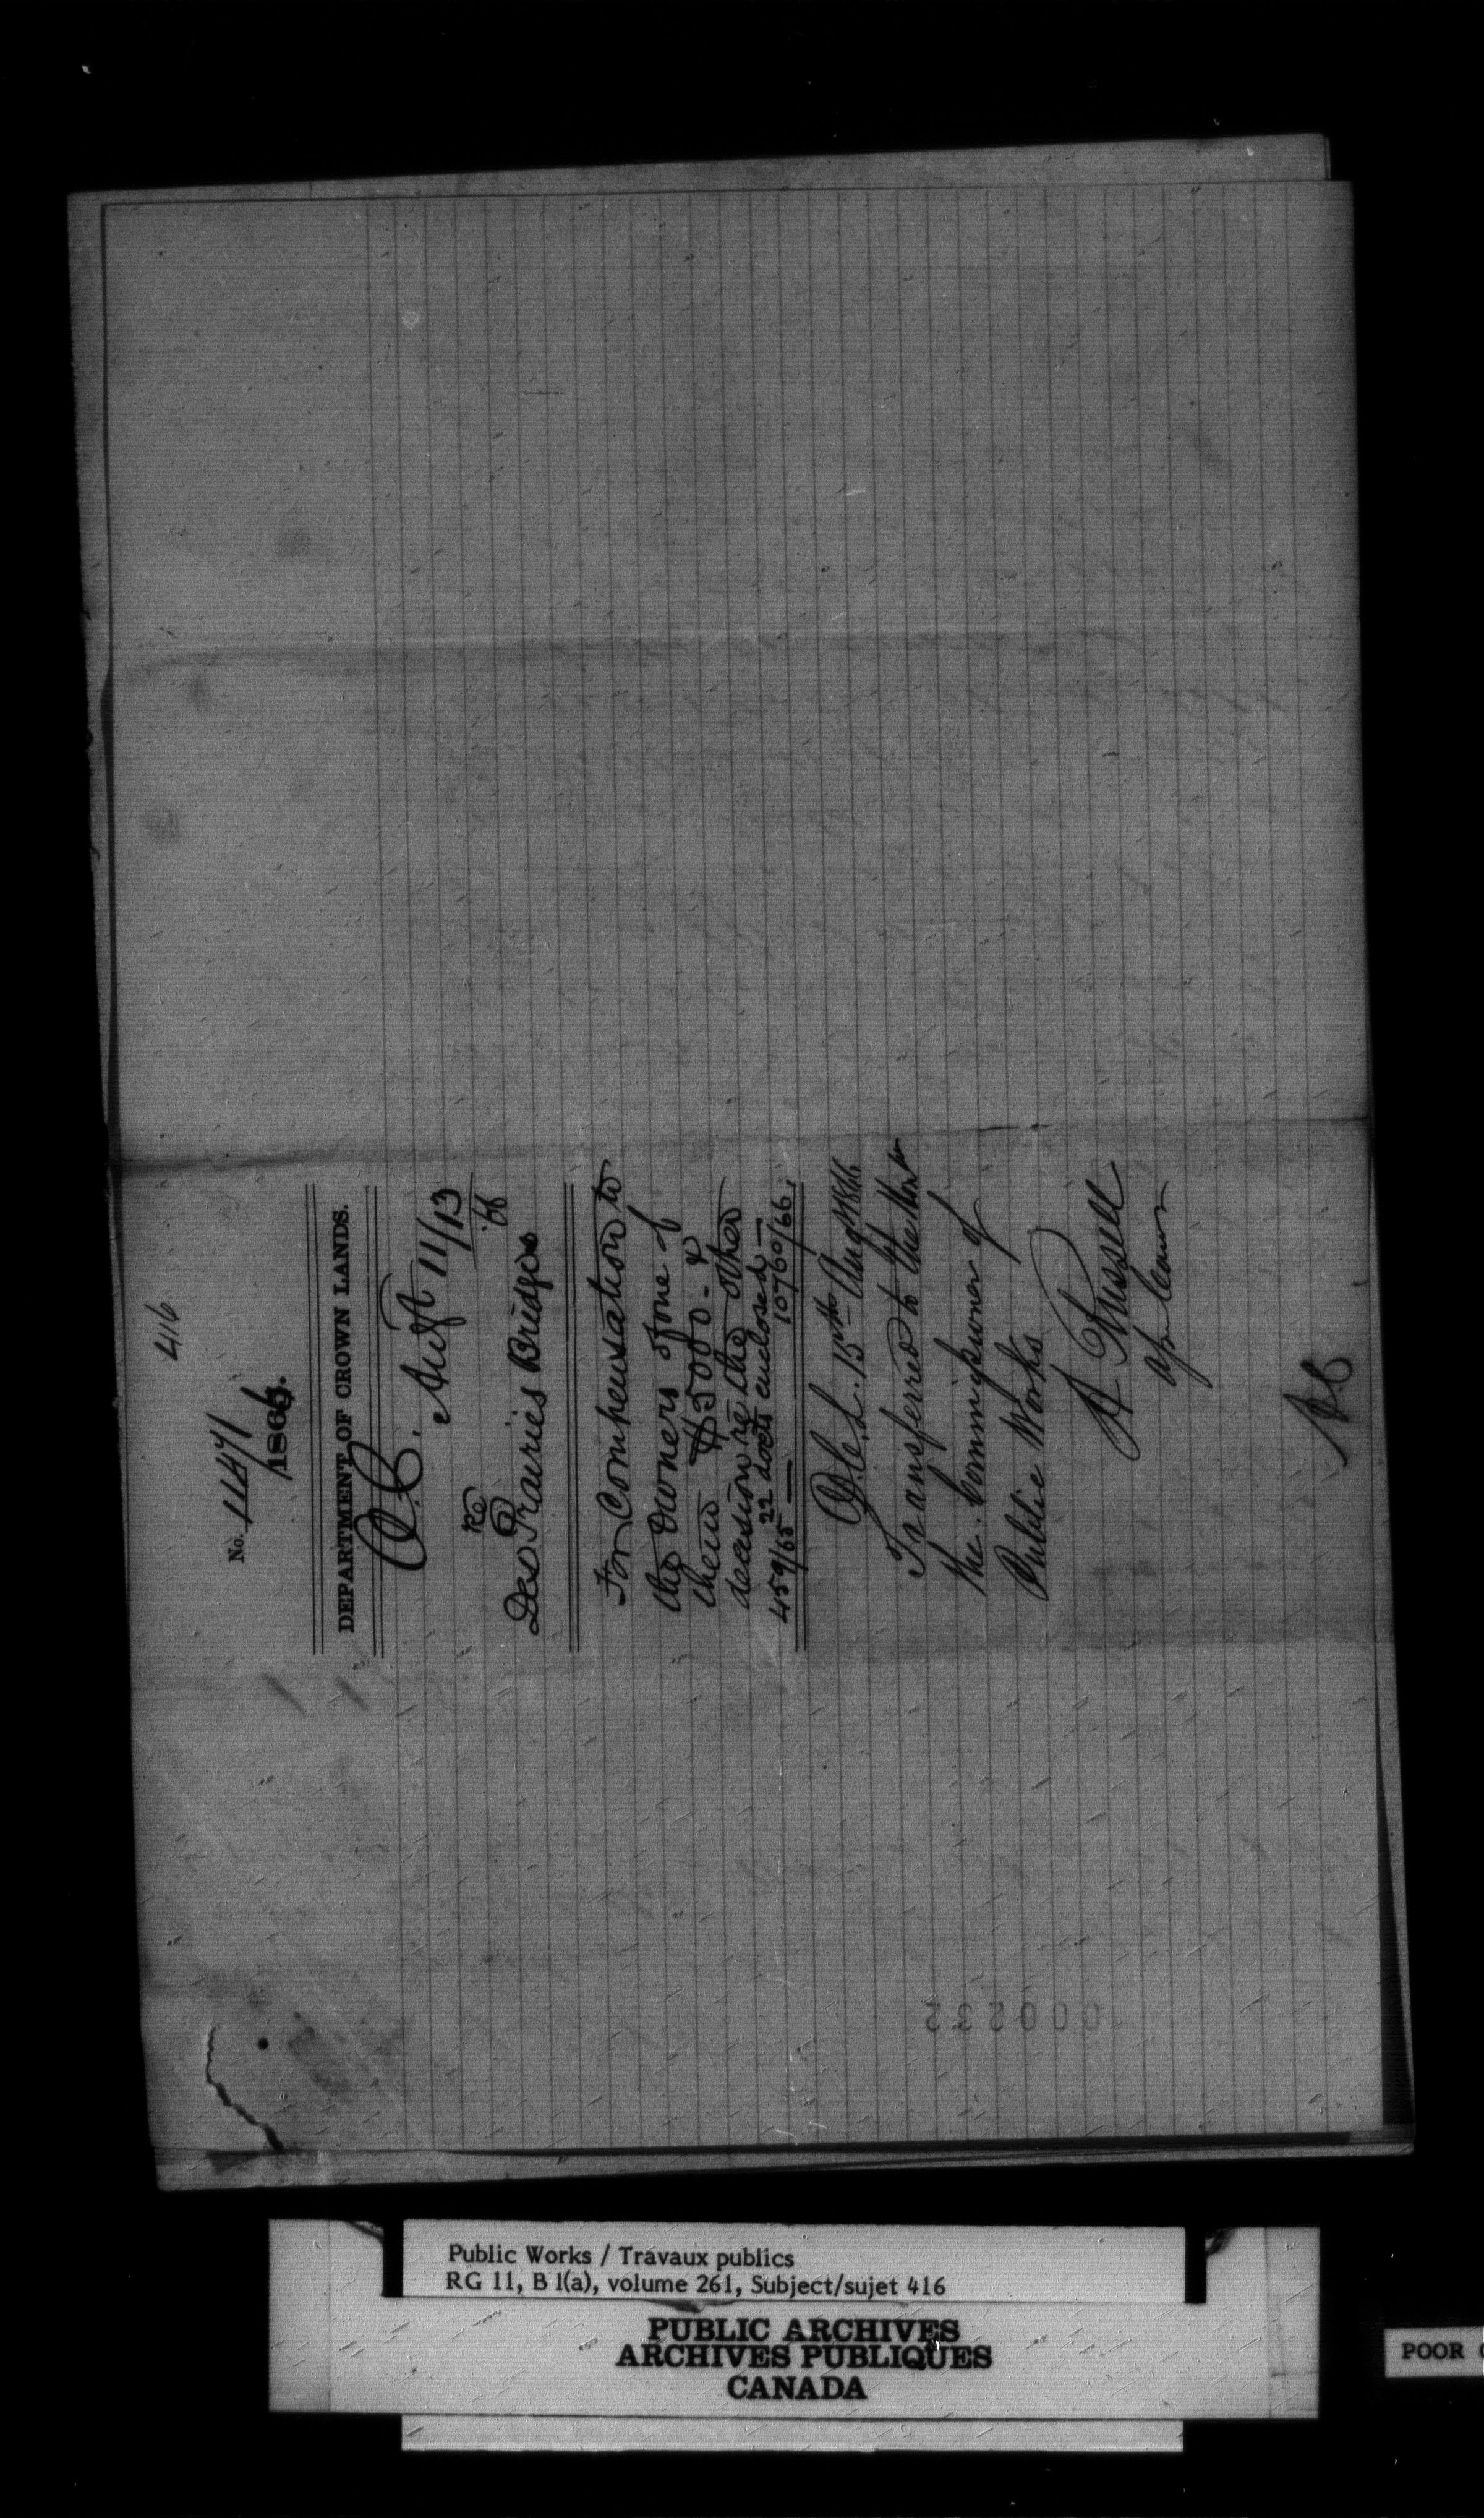 416
No. 11471
1866.
DEPARTMENT OF CROWN LANDS.
O.C.
Augt 11/13
'66
Re
Des Prairies Bridges
For Compensation to
the Owners of one of
them $5000 - &
decision re the other
22 docts enclosed —
459/65 — 10760/66.
D.C.L. 15th Augt 1866
Transferred to the Honble
the Commissioner of
Public Works
A Russell
000232
Public Works / Travaux publics
RG 11, B 1(a), volume 261, Subject/sujet 416
PUBLIC ARCHIVES
ARCHIVES PUBLIQUES
CANADA
POOR